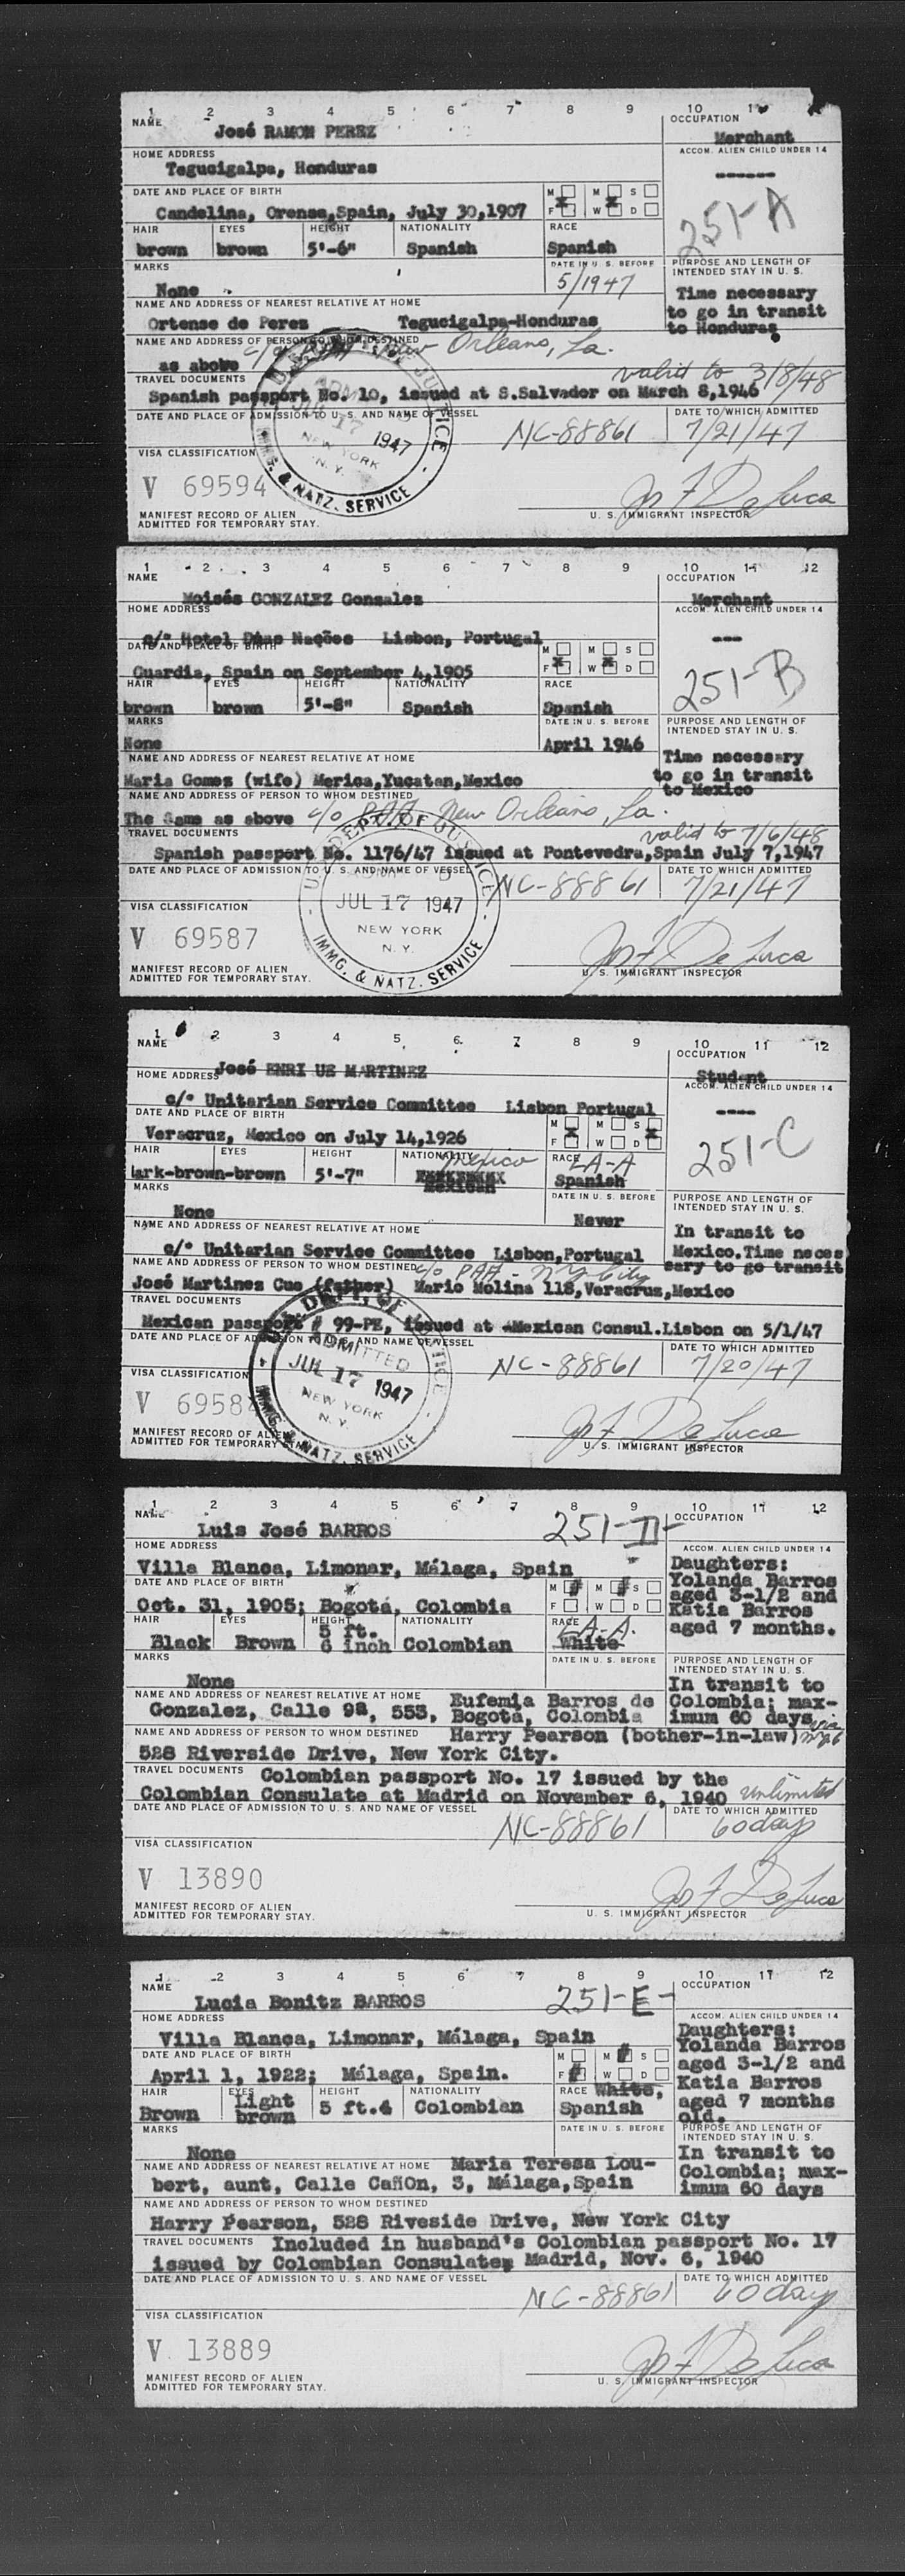 1 2 3 4 5 6 7 8 9 10
NAME José RAMON PEREZ
OCCUPATION Merchant
HOME ADDRESS
Tegucigalpa, Honduras
ACCOM. ALIEN CHILD UNDER 14
------
251-A
DATE AND PLACE OF BIRTH
M M S
F W D
Candelina, Orense,Spain, July 30,1907
HAIR EYES HEIGHT NATIONALITY RACE
brown brown 5'-6" Spanish Spanish
MARKS DATE IN U. S. BEFORE
None 5/1947
PURPOSE AND LENGTH OF
INTENDED STAY IN U. S.
Time necessary
to go in transit
to Honduras
NAME AND ADDRESS OF NEAREST RELATIVE AT HOME
Ortense de Peres Tegucigalpa-Honduras
NAME AND ADDRESS OF PERSON TO WHOM DESTINED
as above c/o PAA New Orleans, La.
valid to 3/8/48
TRAVEL DOCUMENTS
Spanish passport No. 10, issued at S.Salvador on March 8,1946
DATE AND PLACE OF ADMISSION TO U. S. AND NAME OF VESSEL DATE TO WHICH ADMITTED
NC-88861 7/21/47
JUL 17 1947
NEW YORK
N. Y.
IMMG. & NATZ. SERVICE
VISA CLASSIFICATION
V 69594
Jos F De Luca
MANIFEST RECORD OF ALIEN
ADMITTED FOR TEMPORARY STAY.
U. S. IMMIGRANT INSPECTOR
1 2 3 4 5 6 7 8 9 10 11 12
NAME OCCUPATION
Moisés GONZALEZ Gonzalez Merchant
HOME ADDRESS ACCOM. ALIEN CHILD UNDER 14
c/o Hotel Duas Nações Lisbon, Portugal ---
DATE AND PLACE OF BIRTH
M M S
F W D
Guardia, Spain on September 4,1905
251-B
HAIR EYES HEIGHT NATIONALITY RACE
brown brown 5'-8" Spanish Spanish
MARKS DATE IN U. S. BEFORE
None April 1946
PURPOSE AND LENGTH OF
INTENDED STAY IN U. S.
Time necessary
to go in transit
to Mexico
NAME AND ADDRESS OF NEAREST RELATIVE AT HOME
Maria Gomez (wife) Merica,Yucatan,Mexico
NAME AND ADDRESS OF PERSON TO WHOM DESTINED
The Same as above c/o PAA New Orleans, La.
valid to 7/6/48
TRAVEL DOCUMENTS
Spanish passport No. 1176/47 issued at Pontevedra,Spain July 7,1947
DATE AND PLACE OF ADMISSION TO U. S. AND NAME OF VESSEL DATE TO WHICH ADMITTED
NC-88861 7/21/47
U. S. DEPT. OF JUSTICE
JUL 17 1947
NEW YORK
N. Y.
IMMG. & NATZ. SERVICE
VISA CLASSIFICATION
V 69587
Jos F De Luca
MANIFEST RECORD OF ALIEN
ADMITTED FOR TEMPORARY STAY.
U. S. IMMIGRANT INSPECTOR
1 2 3 4 5 6 7 8 9 10 11 12
NAME OCCUPATION
José ENRI UE MARTINEZ Student
HOME ADDRESS ACCOM. ALIEN CHILD UNDER 14
c/o Unitarian Service Committee Lisbon Portugal ----
DATE AND PLACE OF BIRTH
M M S
F W D
Veracruz, Mexico on July 14,1926
251-C
HAIR EYES HEIGHT NATIONALITY RACE
Mexico LA-A
dark-brown-brown 5'-7" Mexican Spanish
MARKS DATE IN U. S. BEFORE
None Never
PURPOSE AND LENGTH OF
INTENDED STAY IN U. S.
In transit to
Mexico.Time neces
sary to go transit
NAME AND ADDRESS OF NEAREST RELATIVE AT HOME
c/o Unitarian Service Committee Lisbon,Portugal
NAME AND ADDRESS OF PERSON TO WHOM DESTINED c/o PAA - N.Y. City
José Martinez Cue (father) Mario Molina 118,Veracruz,Mexico
TRAVEL DOCUMENTS
Mexican passport # 99-PE, issued at Mexican Consul.Lisbon on 5/1/47
DATE AND PLACE OF ADMISSION TO U. S. AND NAME OF VESSEL DATE TO WHICH ADMITTED
NC-88861 7/20/47
DEPT. OF JUSTICE
ADMITTED
JUL 17 1947
NEW YORK
N. Y.
IMMG. & NATZ. SERVICE
VISA CLASSIFICATION
V 6958
Jos F De Luca
MANIFEST RECORD OF ALIEN
ADMITTED FOR TEMPORARY STAY.
U. S. IMMIGRANT INSPECTOR
1 2 3 4 5 6 7 8 9 10 11 12
NAME 251-D- OCCUPATION
Luis José BARROS
HOME ADDRESS ACCOM. ALIEN CHILD UNDER 14
Villa Blanca, Limonar, Málaga, Spain
Daughters:
Yolanda Barros
aged 3-1/2 and
Katia Barros
aged 7 months.
DATE AND PLACE OF BIRTH
M M S
F W D
Oct. 31, 1905; Bogotá, Colombia
HAIR EYES HEIGHT NATIONALITY RACE
Black Brown 5 ft. 6 inch Colombian LA-A. White
MARKS DATE IN U. S. BEFORE
None
PURPOSE AND LENGTH OF
INTENDED STAY IN U. S.
In transit to
Colombia; max-
imum 60 days
NAME AND ADDRESS OF NEAREST RELATIVE AT HOME Eufemia Barros de
Gonzalez, Calle 9a, 553, Bogotá, Colombia
NAME AND ADDRESS OF PERSON TO WHOM DESTINED Harry Pearson (bother-in-law)
528 Riverside Drive, New York City.
TRAVEL DOCUMENTS Colombian passport No. 17 issued by the
Colombian Consulate at Madrid on November 6, 1940 unlimited
DATE AND PLACE OF ADMISSION TO U. S. AND NAME OF VESSEL DATE TO WHICH ADMITTED
NC-88861 60 days
VISA CLASSIFICATION
V 13890
Jos F De Luca
MANIFEST RECORD OF ALIEN
ADMITTED FOR TEMPORARY STAY.
U. S. IMMIGRANT INSPECTOR
1 2 3 4 5 6 7 8 9 10 11 12
NAME 251-E- OCCUPATION
Lucia Bonitz BARROS
HOME ADDRESS ACCOM. ALIEN CHILD UNDER 14
Villa Blanca, Limonar, Málaga, Spain
Daughters:
Yolanda Barros
aged 3-1/2 and
Katia Barros
aged 7 months
old.
DATE AND PLACE OF BIRTH
M M S
F W D
April 1, 1922; Málaga, Spain.
HAIR EYES HEIGHT NATIONALITY RACE White,
Brown Light brown 5 ft.4 Colombian Spanish
MARKS DATE IN U. S. BEFORE
None
PURPOSE AND LENGTH OF
INTENDED STAY IN U. S.
In transit to
Colombia; max-
imum 60 days
NAME AND ADDRESS OF NEAREST RELATIVE AT HOME Maria Teresa Lou-
bert, aunt, Calle Cañón, 3, Málaga,Spain
NAME AND ADDRESS OF PERSON TO WHOM DESTINED
Harry Pearson, 528 Riveside Drive, New York City
TRAVEL DOCUMENTS Included in husband's Colombian passport No. 17
issued by Colombian Consulate, Madrid, Nov. 6, 1940
DATE AND PLACE OF ADMISSION TO U. S. AND NAME OF VESSEL DATE TO WHICH ADMITTED
NC-88861 60 days
VISA CLASSIFICATION
V 13889
Jos F De Luca
MANIFEST RECORD OF ALIEN
ADMITTED FOR TEMPORARY STAY.
U. S. IMMIGRANT INSPECTOR